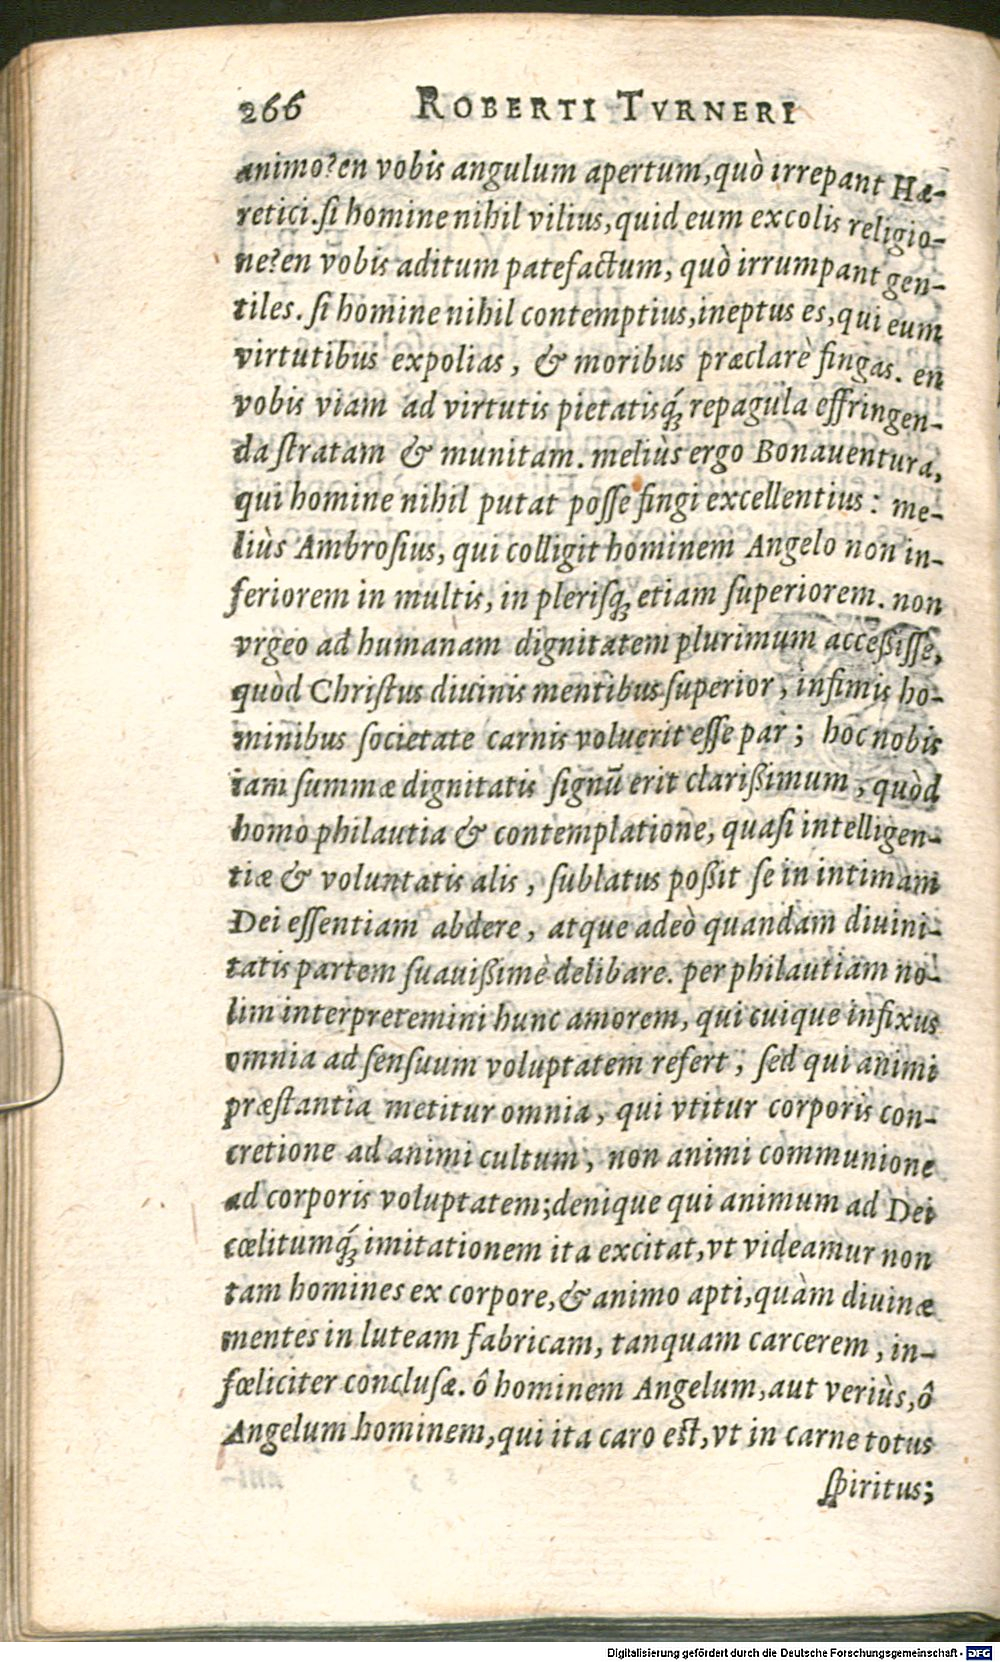 266 ROBERTI TVRNERI
animo? en vobis angulum apertum, quò irrepant Hæ-
retici. ſi homine nihil vilius, quid eum excolis religio-
ne? en vobis aditum patefactum, quò irrumpant gen-
tiles. ſi homine nihil contemptius, ineptus es, qui eum
virtutibus expolias, & moribus præclarè fingas. en
vobis viam ad virtutis pietatisq́; repagula effringen-
da ſtratam & munitam. meliùs ergo Bonauentura,
qui homine nihil putat poſſe fingi excellentius: me-
liùs Ambroſius, qui colligit hominem Angelo non in-
feriorem in multis, in pleriſq; etiam ſuperiorem. non
vrgeo ad humanam dignitatem plurimum acceßiſſe,
quòd Chriſtus diuinis mentibus ſuperior, infimis ho-
minibus ſocietate carnis voluerit eſſe par; hoc nobis
iam ſummæ dignitatis ſignū erit clarißimum, quòd
homo philautia & contemplatione, quaſi intelligen-
tiæ & voluntatis alis, ſublatus poßit ſe in intimam
Dei eſſentiam abdere, atque adeò quandam diuini-
tatis partem ſuauißimè delibare. per philautiam no-
lim interpretemini hunc amorem, qui cuique infixus
omnia ad ſenſuum voluptatem refert, ſed qui animi
præſtantia metitur omnia, qui vtitur corporis con-
cretione ad animi cultum, non animi communione
ad corporis voluptatem; denique qui animum ad Dei
cœlitumq́; imitationem ita excitat, vt videamur non
tam homines ex corpore, & animo apti, quàm diuinæ
mentes in luteam fabricam, tanquam carcerem, in-
fœliciter concluſæ. ô hominem Angelum, aut veriùs, ô
Angelum hominem, qui ita caro eſt, vt in carne totus
ſpiritus;
Digitalisierung gefördert durch die Deutsche Forschungsgemeinschaft - DFG